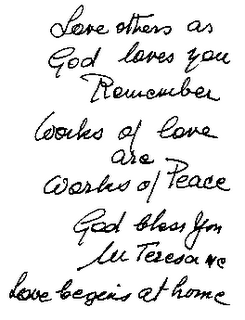 Love others as
God loves you
Remember
Works of love
are
Works of Peace
God bless you
M Teresa mc
Love begins at home